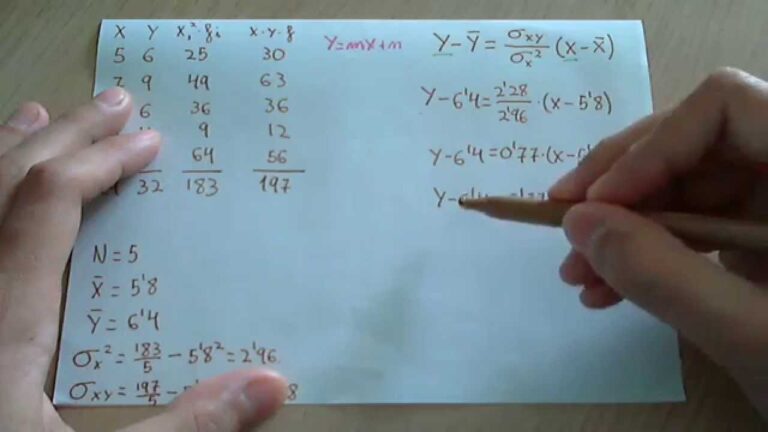 X Y Xi²·fi X·Y·f
5 6 25 30
7 9 49 63
6 36 36
9 12
64 56
32 183 197
Y=mX+n
Y-Ȳ = σxy/σx² (X-X̄)
Y-6'4 = 2'28/2'96 · (X-5'8)
Y-6'4 = 0'77·(X-5'
N = 5
X̄ = 5'8
Ȳ = 6'4
σx² = 183/5 - 5'8² = 2'96
σxy = 197/5 - 8